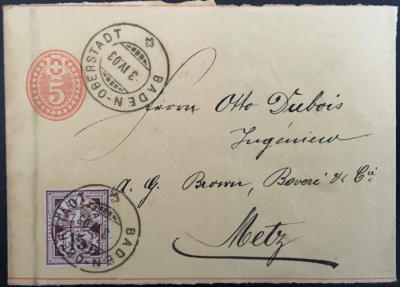 5
BADEN-OBERSTADT
3.IV.03
Herrn Otto Dubois
Ingénieur
A. G. Brown, Boveri & Cie
Metz
15
BADEN-